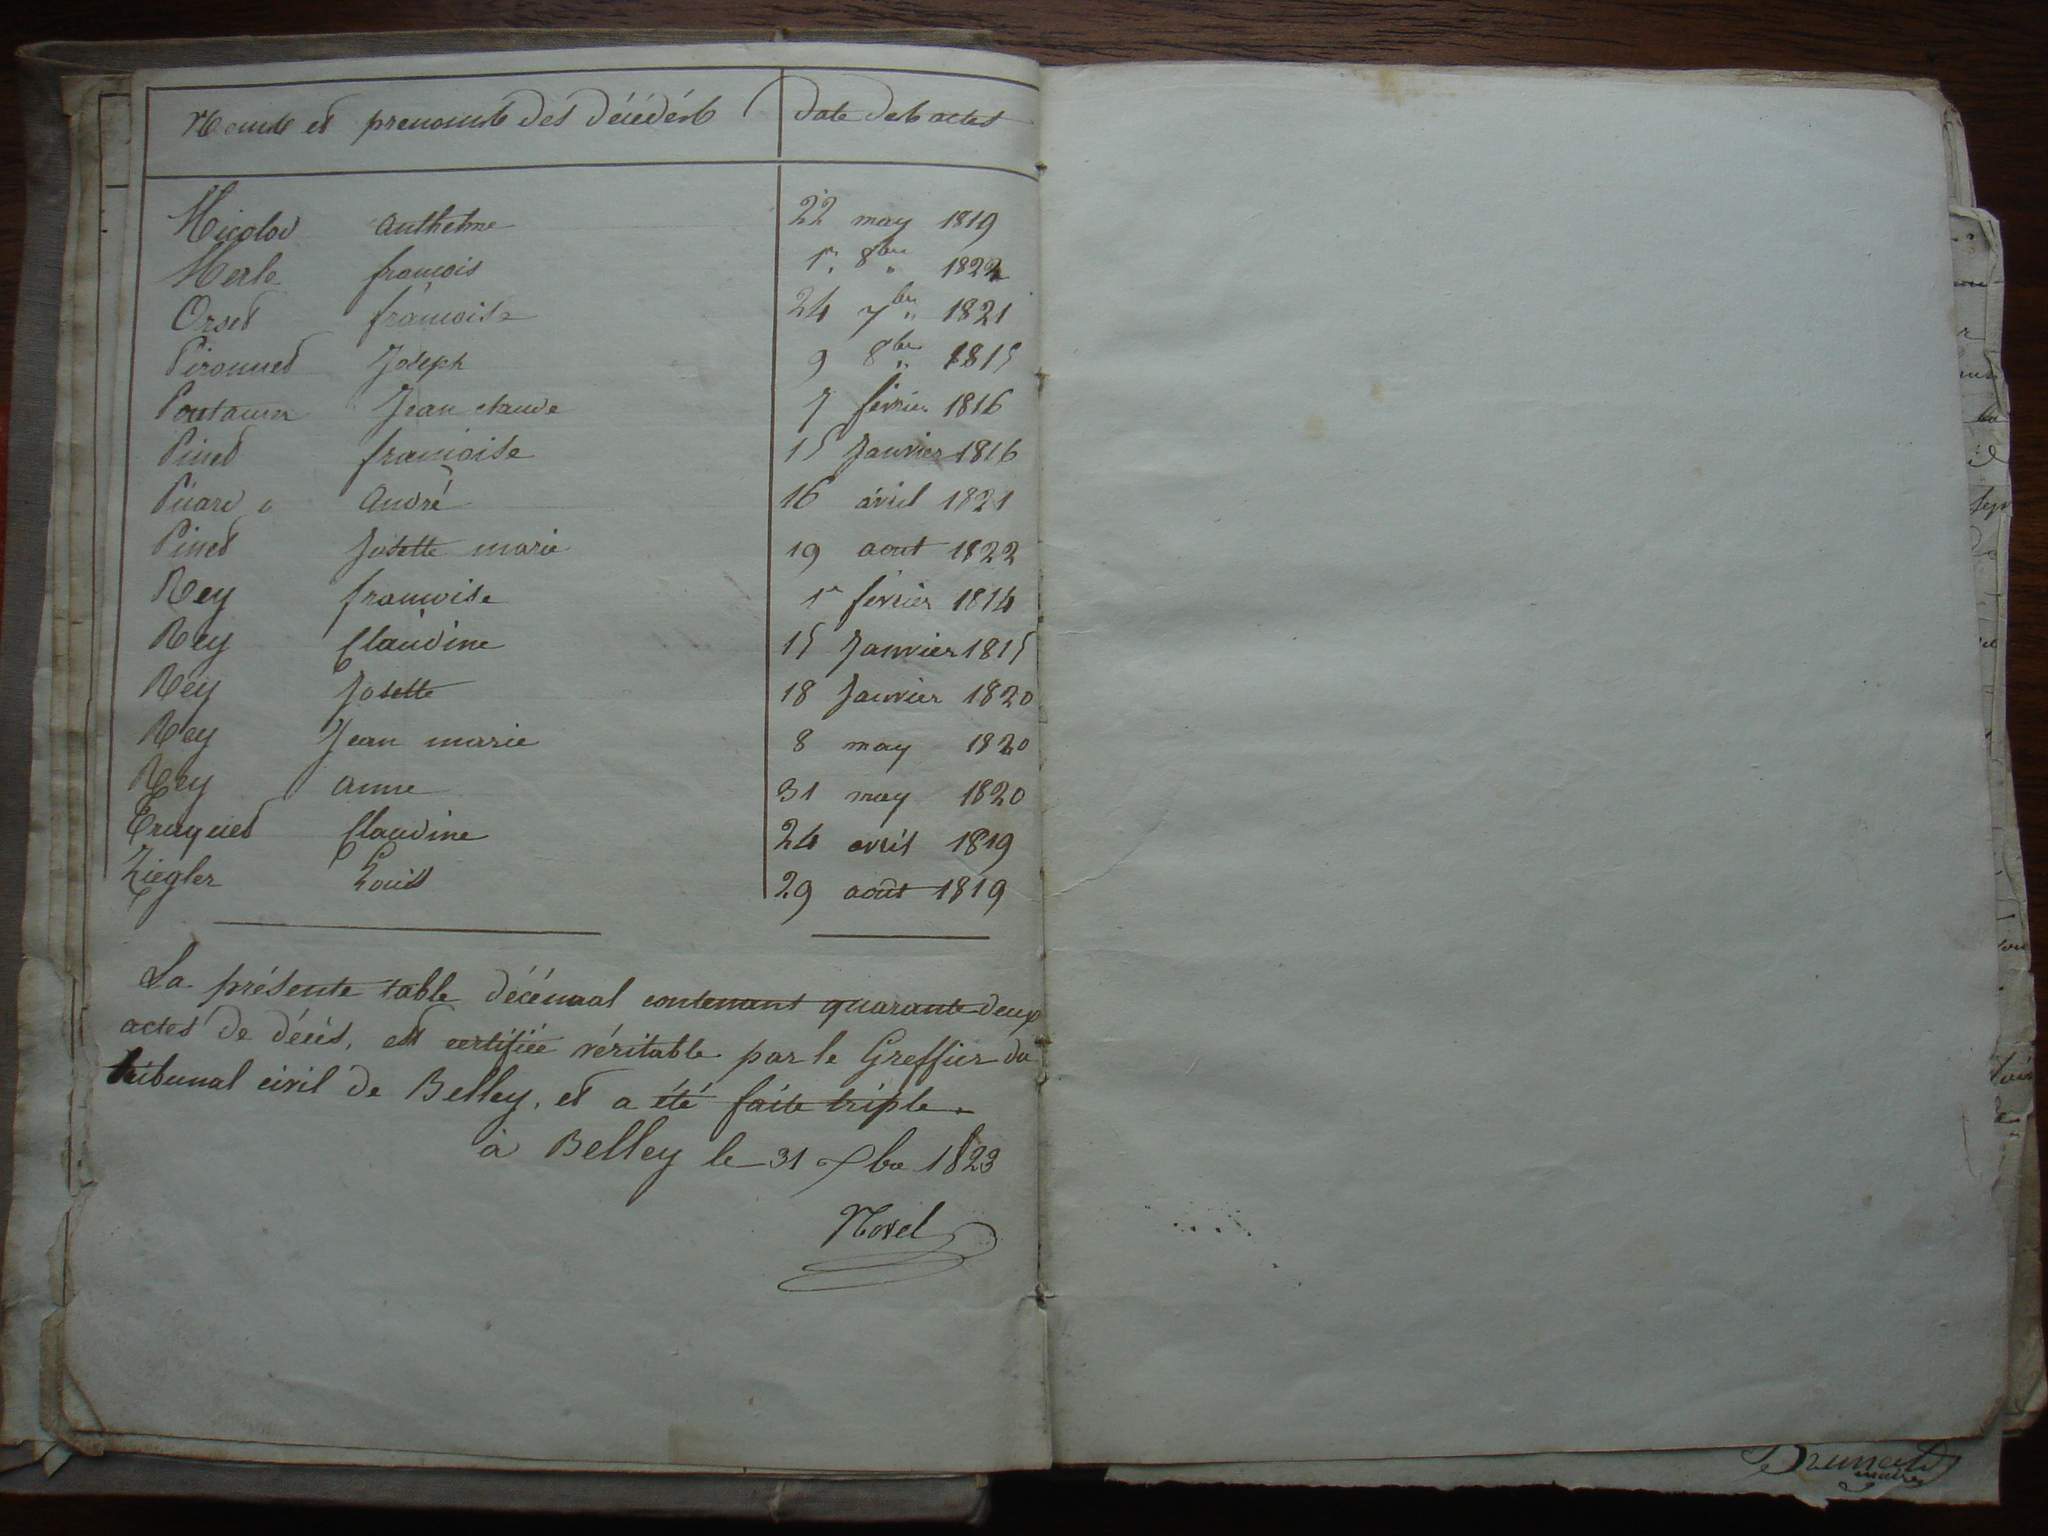 Noms et prenoms des décédés date des actes
Micolod Anthelme 22 may 1819
Merle françois 1er 8bre 1822
Orset françoise 24 7bre 1821
Pironnet Joseph 9 8bre 1815
Jean claude 7 février 1816
Pinet françoise 15 Janvier 1816
André 16 avril 1821
Pinet Josette marie 19 aout 1822
Rey françoise 1er février 1814
Rey Claudine 15 Janvier 1815
Rey Josette 18 Janvier 1820
Rey Jean marie 8 may 1820
Rey anne 31 may 1820
Truquet Claudine 24 avril 1819
Ziegler Louis 29 août 1819
La présente table décénnal contenant quarante deux
actes de décès, est certifiée véritable par le Greffier du
tribunal civil de Belley, et a été faite triple.
à Belley le 31 Xbre 1823
Novel
maire